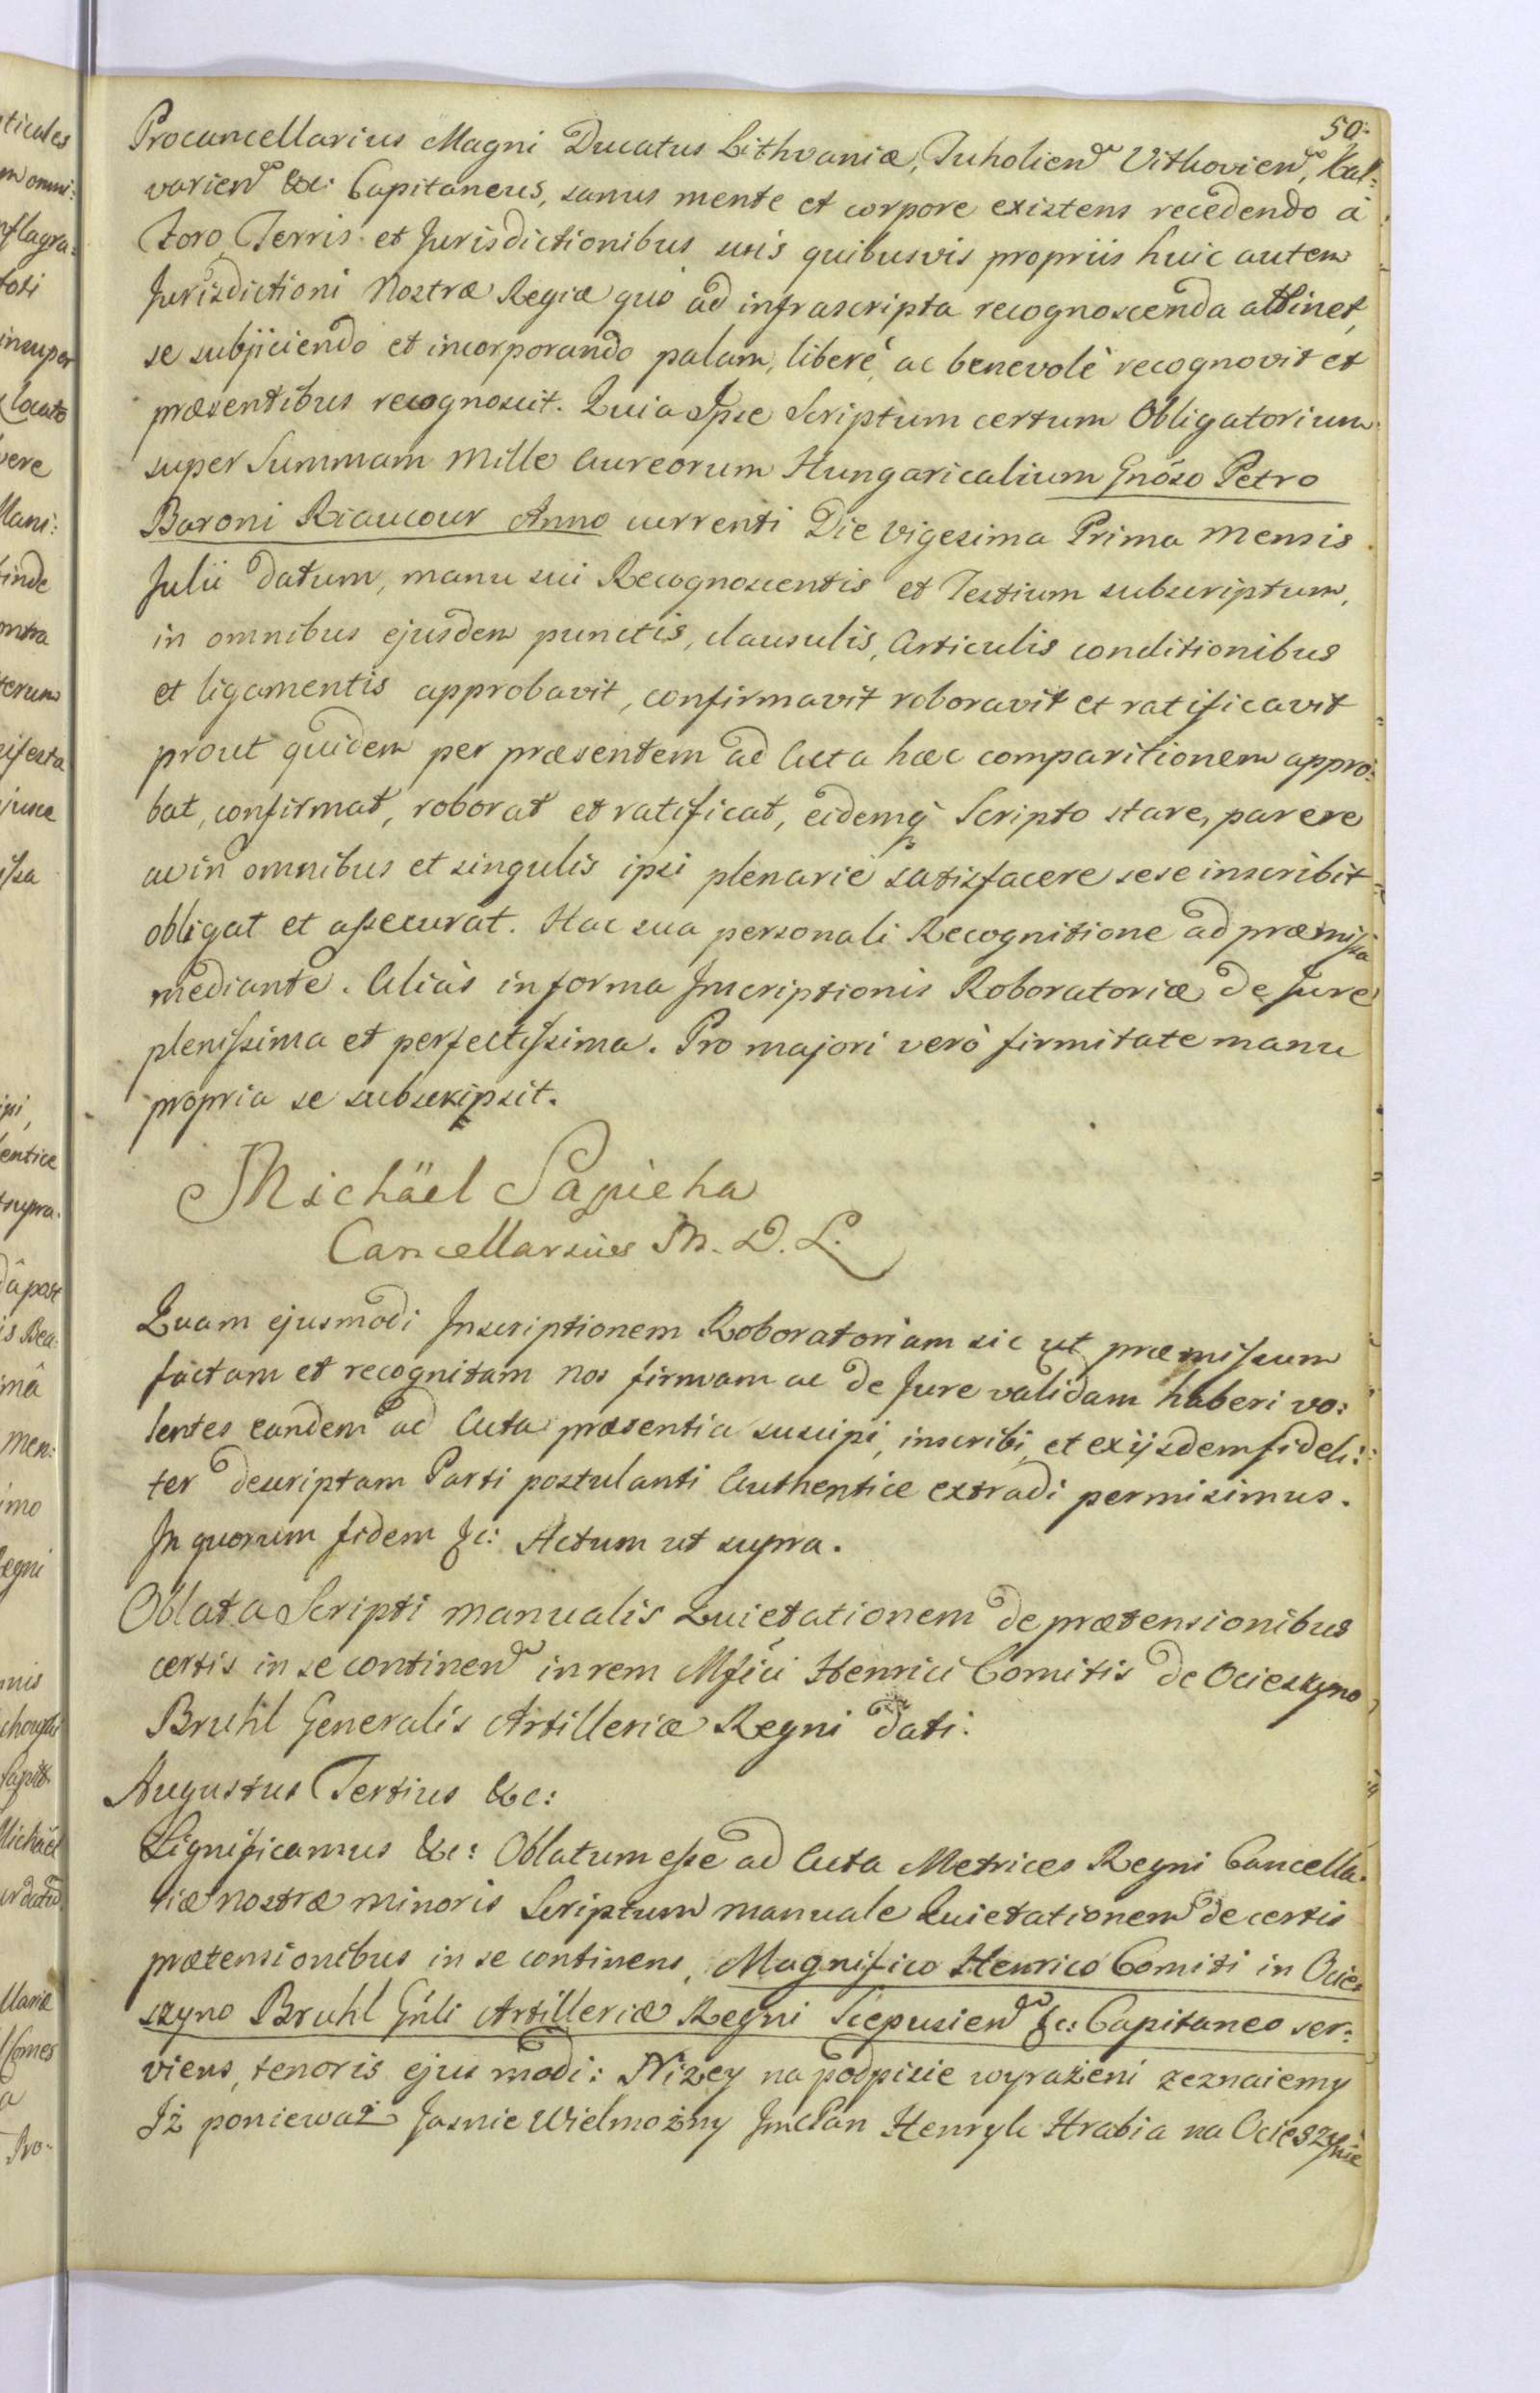 50.
Procancellarius Magni Ducatus Lithvaniæ, Tuholien Vithovien, Kal=
varien &c: Capitaneus, sanus mente et corpore existens recedendo à
Foro, Terris et Jurisdictionibus suis quibusvis propriis huic autem
Jurisdictioni Nostræ Regiæ quo ad infrascripta recognoscenda attinet,
se subjiciendo et incorporando palam, liberè ac benevolè recognovit et
præsentibus recognoscit. Quia Ipse Scriptum certum Obligatorium
super Summam Mille Aureorum Hungaricalium Gnöso Petro
Baroni Riaucour Anno currenti Die Vigesima Prima Mensis
Julii datum, manu sui Recognoscentis et Testium subscriptum,
in omnibus ejusdem punctis, clausulis, Articulis conditionibus
et ligamentis approbavit, confirmavit roboravit et ratificavit
prout quidem per præsentem ad Acta hæc comparitionem appro:
bat, confirmat, roborat et ratificat, eidemq Scripto stare, parere
ac in omnibus et singulis ipsi plenariè satisfacere sese inscribit
obligat et assecurat. Hac sua personali Recognitione ad præmissa
mediante. Aliàs in forma Inscriptionis Roboratoriæ de Jure
plenissima et perfectissima. Pro majori verò firmitate manu
propria se subscripsit.
Michäel Sapieha
Cancellarius M. D. L.
Quam ejusmodi Inscriptionem Roboratoriam sic ut præmissum
factam et recognitam nos firmam ac de Jure validam haberi vo:
lentes eandem ad Acta præsentia suscipi, inscribi, et ex iisdem fideli:
ter descriptam Parti postulanti Authentice extradi permisimus.
In quorum fidem &c: Actum ut supra.
Oblata Scripti manualis Quietationem de prætensionibus
certis in se continen in rem Mfici Henrici Comitis de Ocieszyno
Bruhl Generalis Artilleriæ Regni dati.
Augustus Tertius &c:
Significamus &c: Oblatum esse ad Acta Metrices Regni Cancella:
riæ nostræ minoris Scriptum manuale Quietationem de certis
prætensionibus in se continens, Magnifico Henrico Comiti in Ocie=
szyno Bruhl Gnli Artilleriæ Regni Scepusien &c: Capitaneo ser:
viens, tenoris ejusmodi: Niżey na podpisie wyrażeni zeznaiemy
Iż ponieważ Jasnie Wielmożny Jmc Pan Henryk Hrabia na Ocieszynie